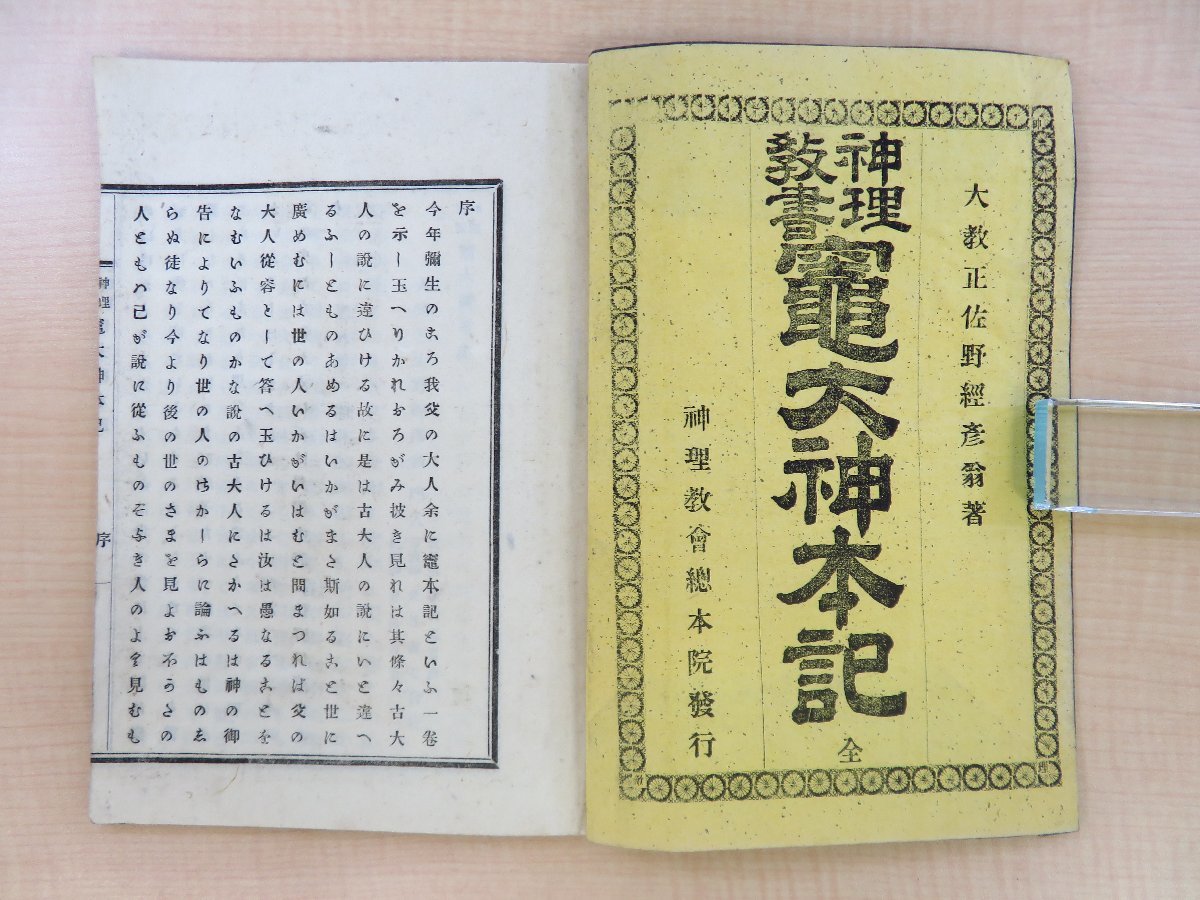 大教正佐野經彥翁著
神理
教書
竈大神本記 全
神理教會總本院發行
序
今年彌生のころ我父の大人余に竈本記といふ一卷
を示し玉へりかれおろがみ披き見れは其條々古大
人の說に違ひける故に是は古大人の說にいと違へ
るふしとものあめるはいかがまさ斯如ること世に
廣めむには世の人いかがいはむと問まつれば父の
大人從容として答へ玉ひけるは汝は愚なることを
なむいふものかな說の古大人にさかへるは神の御
告によりてなり世の人のけかしらに論ふはものゑ
らぬ徒なり今より後の世のさまを見よおほろさの
人ともハ己が說に從ふものそよき人のよく見むも
神理 竈大神本記 序